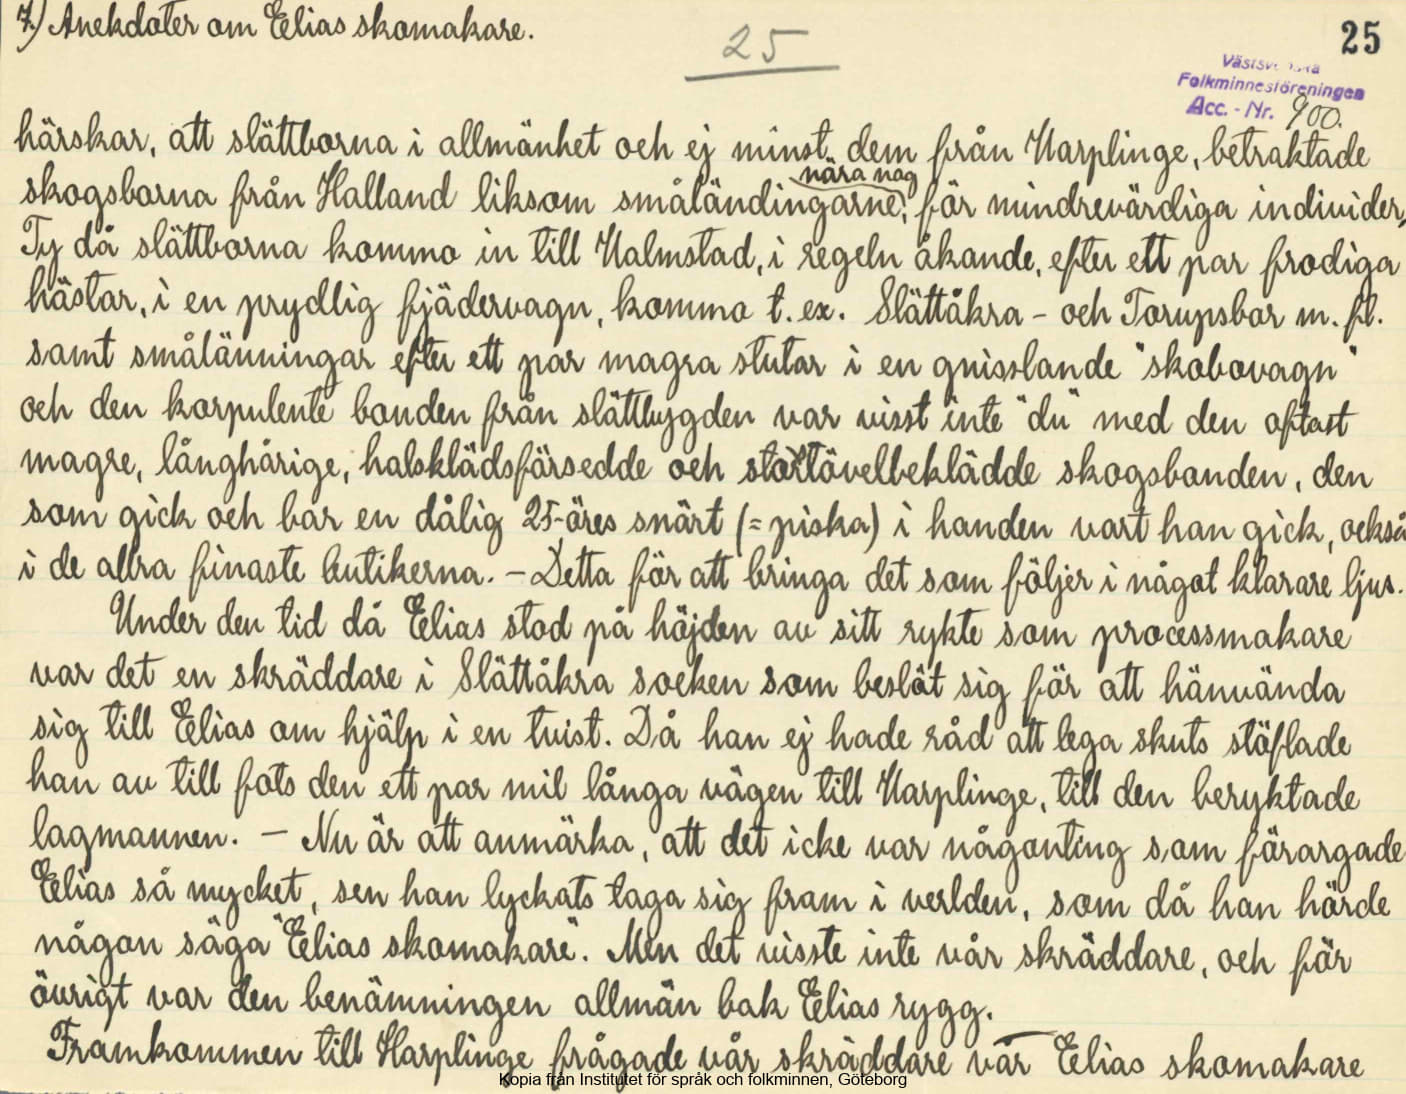 7.) Anekdoter om Elias skomakare.
25
25
Västsvenska
Folkminnesföreningen
Acc. - Nr. 900.
härskar, att slättborna i allmänhet och ej minst dem från Harplinge, betraktade
nära nog
skogsborna från Halland liksom småländingarne, för mindrevärdiga individer,
Ty då slättborna kommo in till Halmstad, i regeln åkande, efter ett par frodiga
hästar, i en prydlig fjädervagn, kommo t. ex. Slättåkra- och Torupsbor m. fl.
samt smålänningar efter ett par magra stutar i en gnisslande "skobovagn"
och den korpulente bonden från slättbygden var visst inte "du" med den oftast
magre, långhårige, halsklädsförsedde och storstövelbeklädde skogsbonden, den
som gick och bar en dålig 25-öres snärt (= piska) i handen vart han gick, också
i de allra finaste butikerna. - Detta för att bringa det som följer i något klarare ljus.
Under den tid då Elias stod på höjden av sitt rykte som processmakare
var det en skräddare i Slättåkra socken som beslöt sig för att hänvända
sig till Elias om hjälp i en tvist. Då han ej hade råd att lega skuts stöflade
han av till fots den ett par mil långa vägen till Harplinge, till den beryktade
lagmannen. - Nu är att anmärka, att det icke var någonting som förargade
Elias så mycket, sen han lyckats taga sig fram i verlden, som då han hörde
någon säga "Elias skomakare". Men det visste inte vår skräddare, och för
övrigt var den benämningen allmän bak Elias rygg.
Framkommen till Harplinge frågade vår skräddare var Elias skomakare
Kopia från Institutet för språk och folkminnen, Göteborg